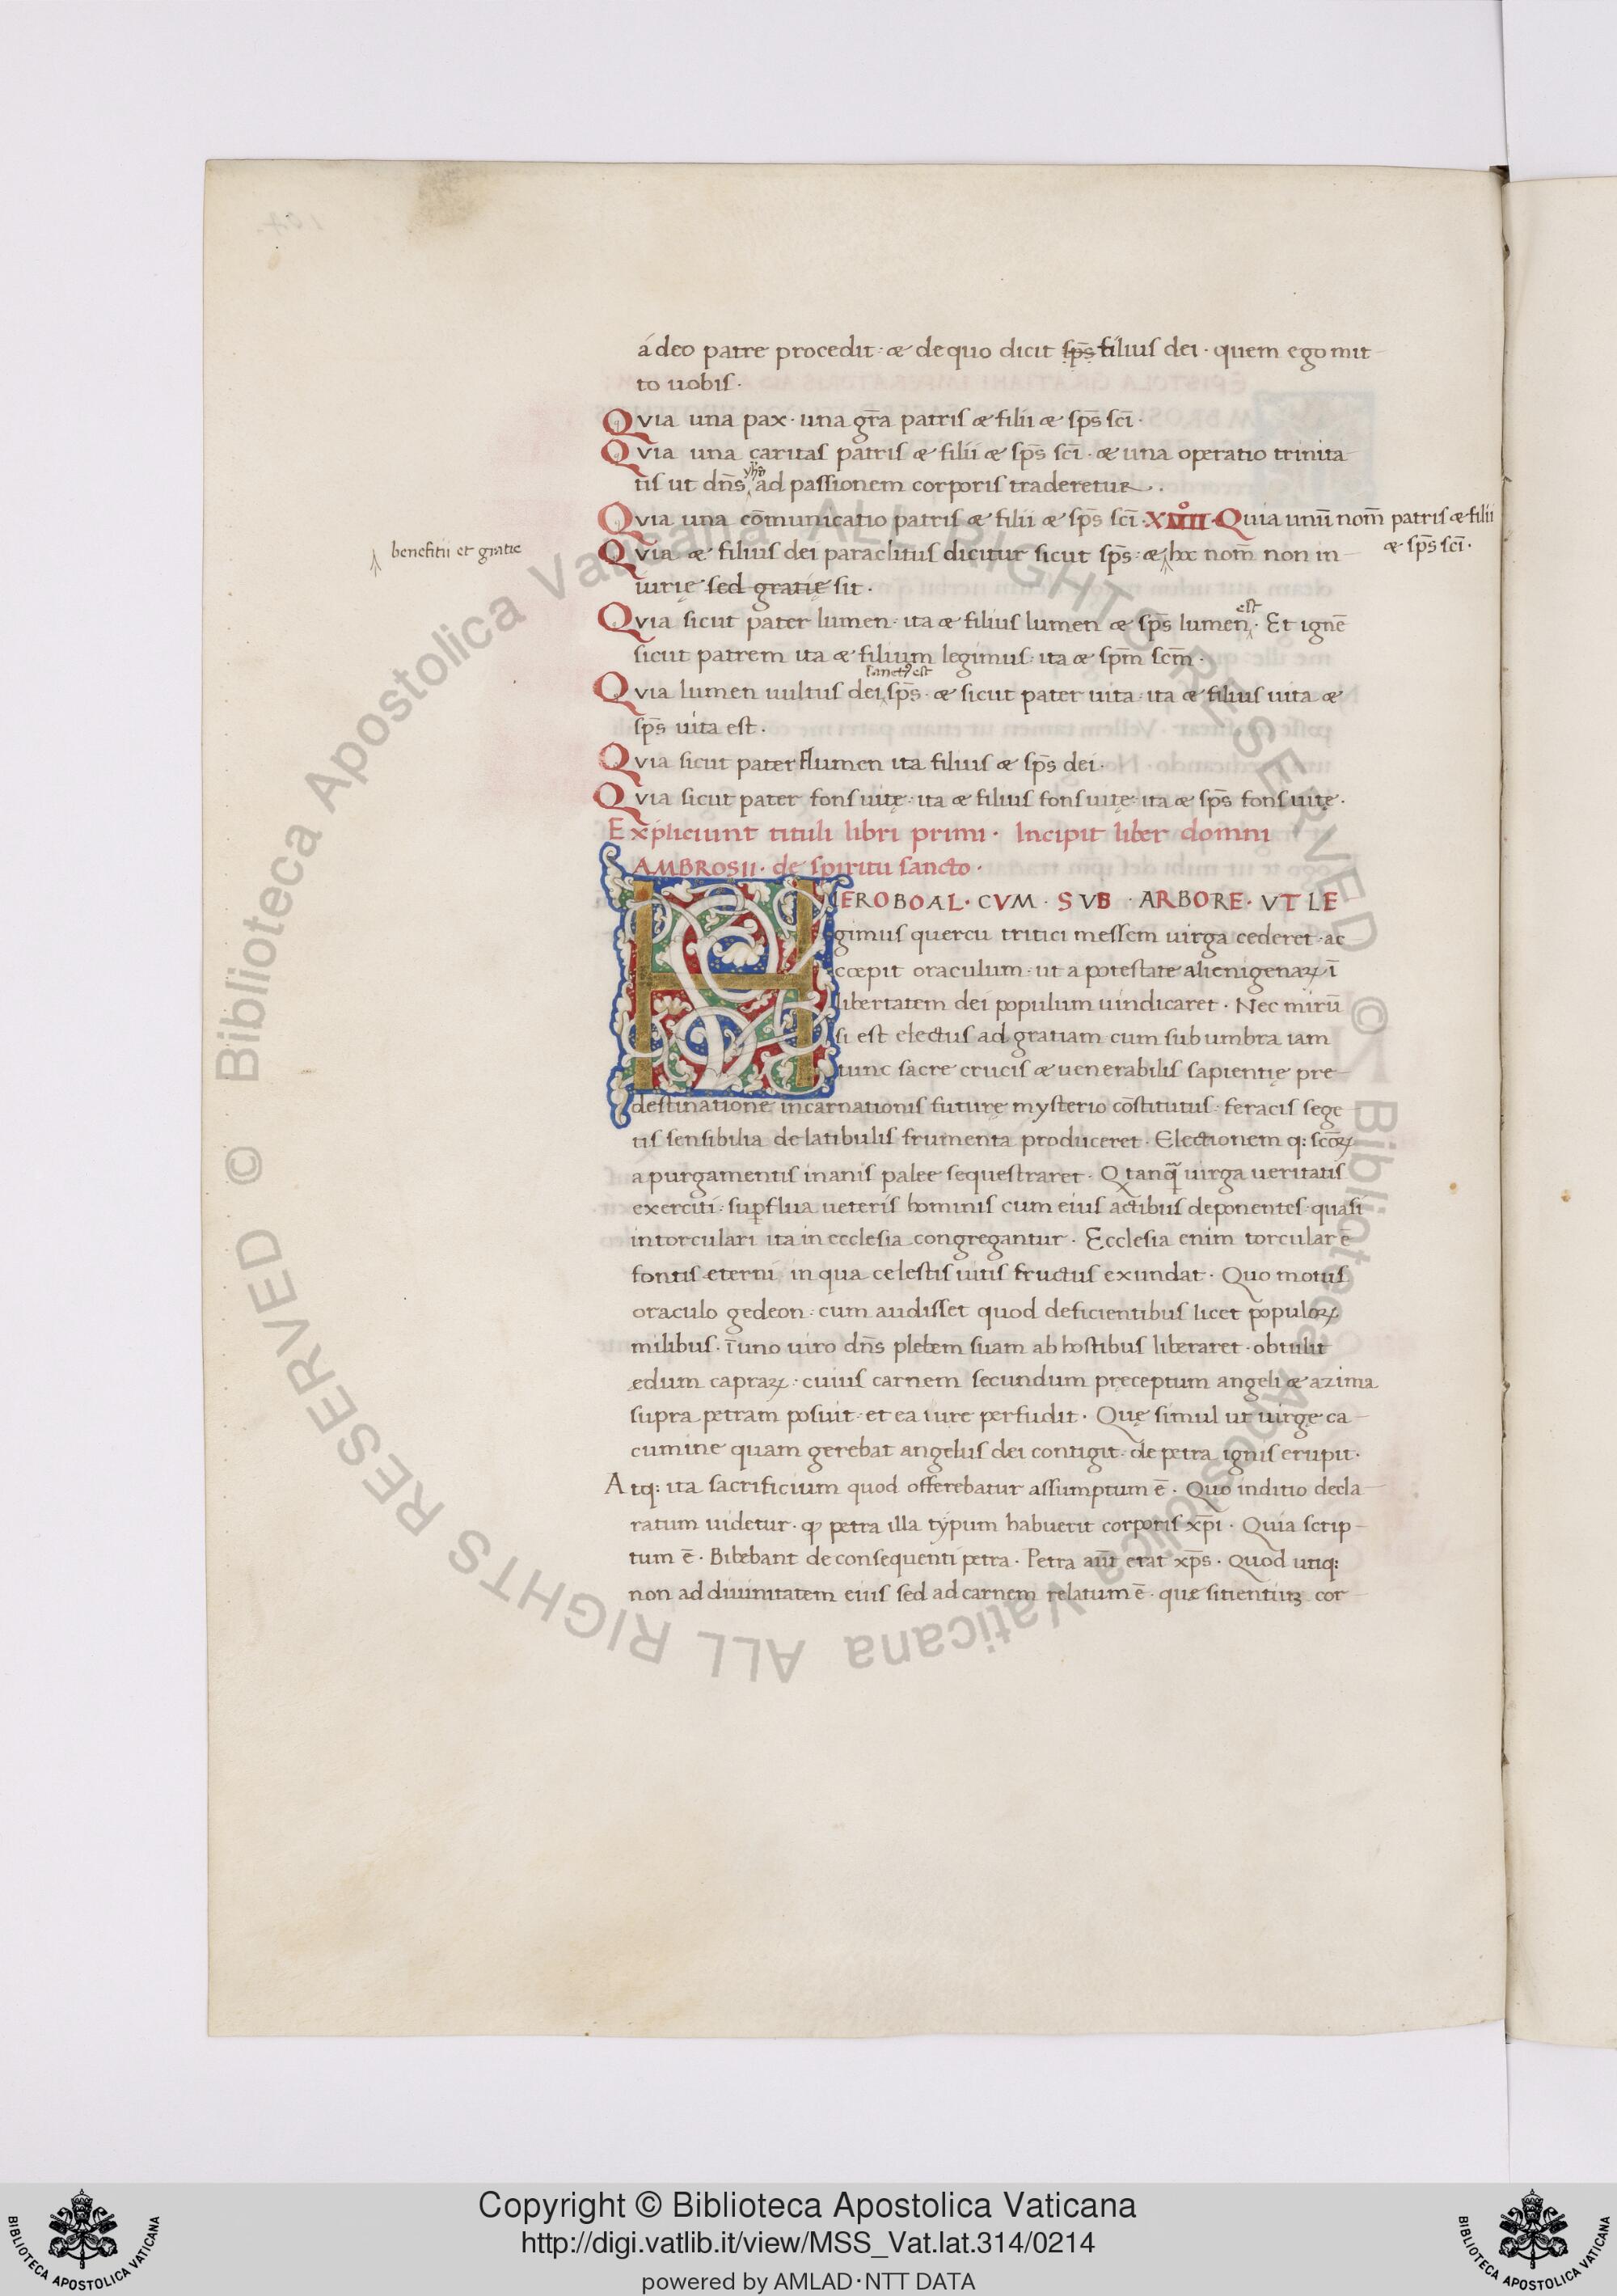 á deo patre procedit · & de quo dicit sp̄s filius dei · quem ego mit
to uobis ·
Qvia una pax · una gr̄a patris & filii & sp̄s sc̄i ·
Qvia una caritas patris & filii & sp̄s sc̄i · & una operatio trinita
yħm
tis ut dn̄s ad passionem corporis traderetur ·
Qvia una cōmunicatio patris & filii & sp̄s sc̄i · Quia unū nom̄ patris & filii
& sp̄s sc̄i ·
benefitii et gratie
Qvia & filius dei paraclitus dicitur sicut sp̄s · & hoc nom̄ non in
iurię sed gratię sit ·
est
Qvia sicut pater lumen · ita & filius lumen & sp̄s lumen · Et ignē
sicut patrem ita & filium legimus · ita & sp̄m sc̄m ·
sanctꝰ est
Qvia lumen uultus dei sp̄s · & sicut pater uita · ita & filius uita &
sp̄s uita est ·
Qvia sicut pater flumen ita filius & sp̄s dei ·
Qvia sicut pater fons uitę · ita & filius fons uitę · ita & sp̄s fons uitę ·
Expliciunt tituli libri primi · Incipit liber domni
AMBROSII · de spiritu sancto ·
HIEROBOAL · CVM · SVB · ARBORE · VT LE
gimus quercu tritici messem uirga cederet · ac
cœpit oraculum · ut a potestate alienigenaꝝ ī
libertatem dei populum uindicaret · Nec mirū
si est electus ad gratiam cum sub umbra iam
tunc sacre crucis & uenerabilis sapientię pre
destinatione incarnationis futurę mysterio cōstitutus · feracis sege
tis sensibilia de latibulis frumenta produceret · Electionem q: sc̄oꝝ
a purgamentis inanis palee sequestraret · Q tanq̄ uirga ueritatis
exerciti · suꝑflua ueteris hominis cum eius actibus deponentes · quasi
in torculari ita in ecclesia congregantur · Ecclesia enim torcular ē
fontis eterni in qua celestis uitis fructus exundat · Quo motus
oraculo gedeon · cum audisset quod deficientibus licet populoꝝ
milibus · ī uno uiro dn̄s plebem suam ab hostibus liberaret · obtulit
edum capraꝝ · cuius carnem secundum pręceptum angeli & azima
supra petram posuit · et ea iure perfudit · Quę simul ut uirgę ca
cumine quam gerebat angelus dei contigit · de petra ignis erupit ·
Atq: ita sacrificium quod offerebatur assumptum ē · Quo inditio decla
ratum uidetur · ꝙ petra illa typum habuerit corporis xp̄i · Quia scrip
tum ē · Bibebant de consequenti petra · Petra aūt erat xp̄s · Quod utiq:
non ad diuinitatem eius sed ad carnem relatum ē · quæ sitientiuꝫ cor
Copyright © Biblioteca Apostolica Vaticana
http://digi.vatlib.it/view/MSS_Vat.lat.314/0214
powered by AMLAD·NTT DATA
BIBLIOTECA APOSTOLICA VATICANA
BIBLIOTECA APOSTOLICA VATICANA
© Biblioteca Apostolica Vaticana ALL RIGHTS RESERVED
© Biblioteca Apostolica Vaticana ALL RIGHTS RESERVED